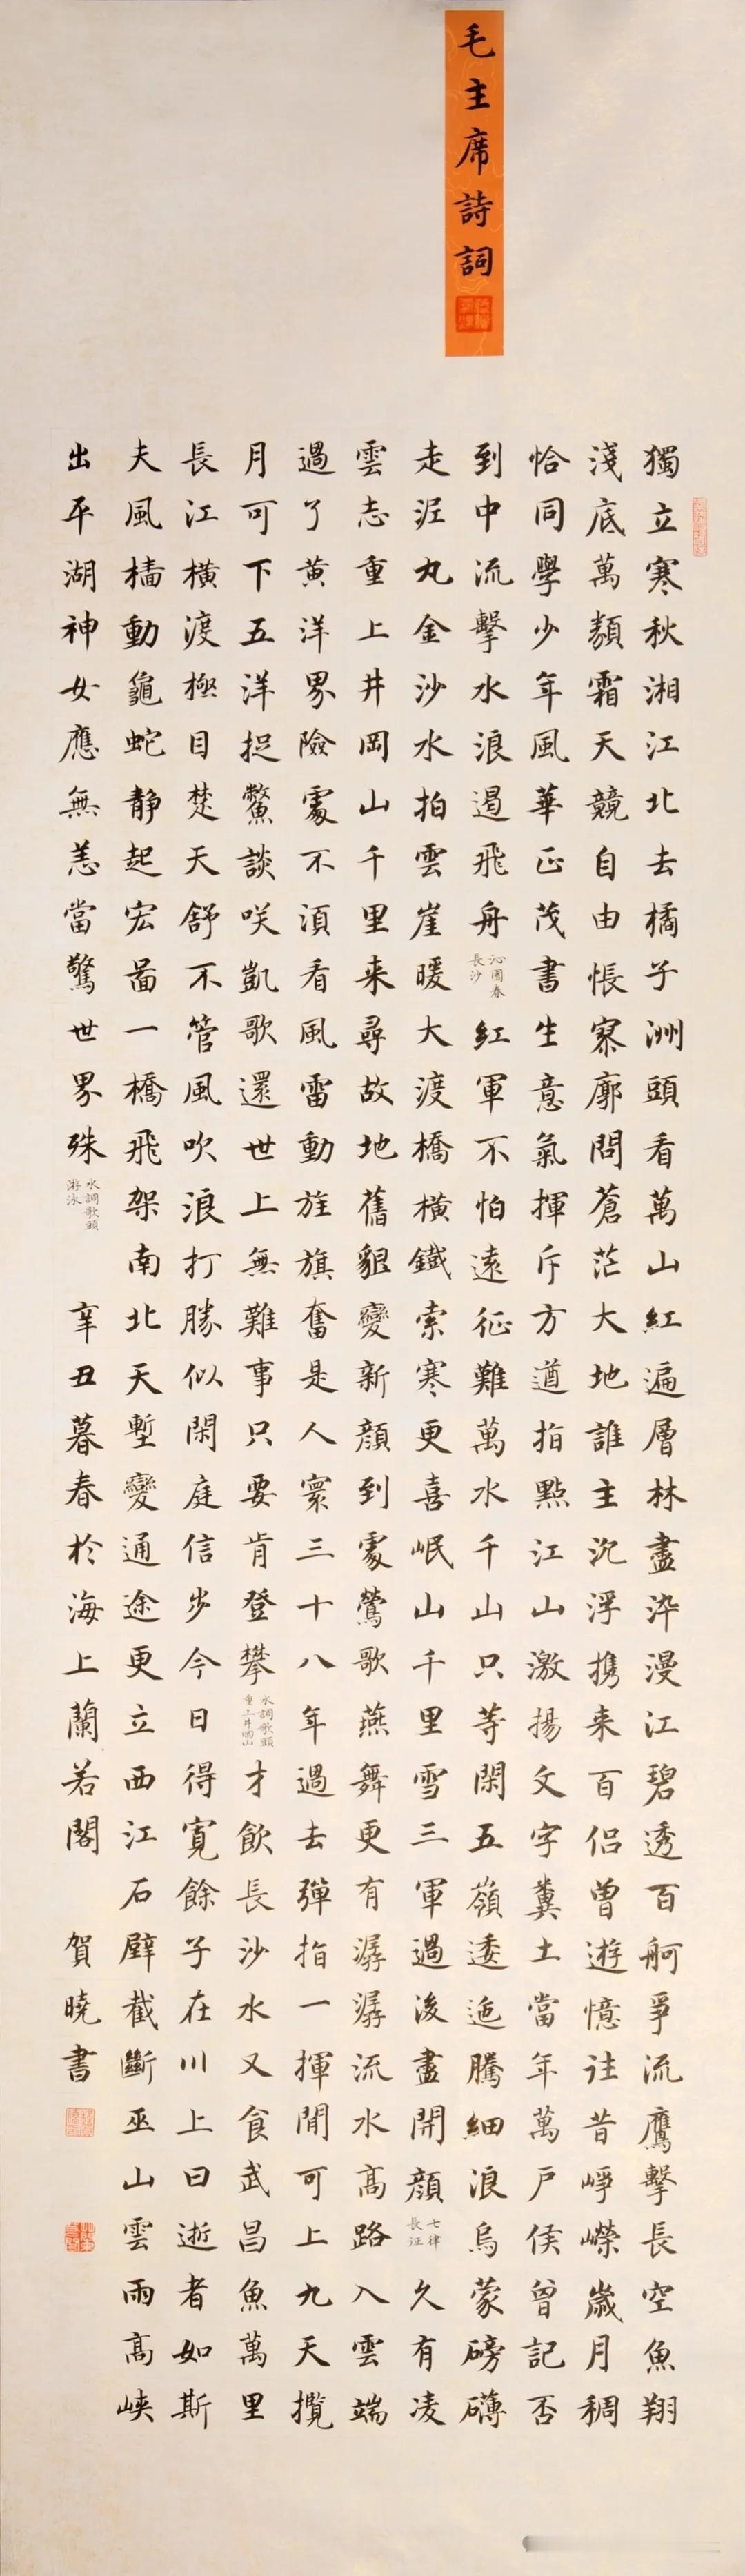 毛主席詩詞
獨立寒秋湘江北去橘子洲頭看萬山紅遍層林盡染漫江碧透百舸爭流鷹擊長空魚翔
淺底萬類霜天競自由悵寥廓問蒼茫大地誰主沉浮携来百侶曾遊憶往昔崢嶸歲月稠
恰同學少年風華正茂書生意氣揮斥方遒指點江山激揚文字糞土當年萬戶侯曾記否
到中流擊水浪遏飛舟 沁園春長沙 紅軍不怕遠征難萬水千山只等閑五嶺逶迤騰細浪烏蒙磅礴
走泥丸金沙水拍雲崖暖大渡橋橫鐵索寒更喜岷山千里雪三軍過後盡開顏 七律長征 久有凌
雲志重上井岡山千里来尋故地舊貌變新顏到處鶯歌燕舞更有潺潺流水高路入雲端
過了黃洋界險處不須看風雷動旌旗奮是人寰三十八年過去彈指一揮間可上九天攬
月可下五洋捉鱉談咲凱歌還世上無難事只要肯登攀 水調歌頭重上井岡山 才飲長沙水又食武昌魚萬里
長江橫渡極目楚天舒不管風吹浪打勝似閑庭信步今日得寬餘子在川上曰逝者如斯
夫風檣動龜蛇靜起宏圖一橋飛架南北天塹變通途更立西江石壁截斷巫山雲雨高峽
出平湖神女應無恙當驚世界殊 水調歌頭游泳 辛丑暮春於海上蘭若閣 賀曉書